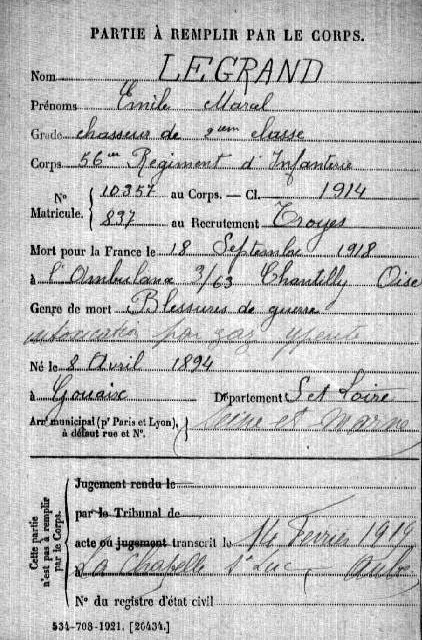 PARTIE À REMPLIR PAR LE CORPS.
Nom LEGRAND
Prénoms Emile Marcel
Grade chasseur de 2eme classe
Corps 56me Regiment d'Infanterie
No Matricule. { 10357 au Corps. — Cl. 1914
837 au Recrutement Troyes
Mort pour la France le 18 Septembre 1918
à l'Ambulance 3/63 Chantilly Oise
Genre de mort Blessures de guerre
intoxication par gaz ypérite
Né le 8 Avril 1894
à Gouaix Département S et Loire
Arr municipal (pr Paris et Lyon), à défaut rue et No. } Seine et Marne
Cette partie n'est pas à remplir par le Corps.
Jugement rendu le
par le Tribunal de
acte ou jugement transcrit le 14 Fevrier 1919
à La Chapelle St Luc Aube
No du registre d'état civil
534-708-1921. [26434.]